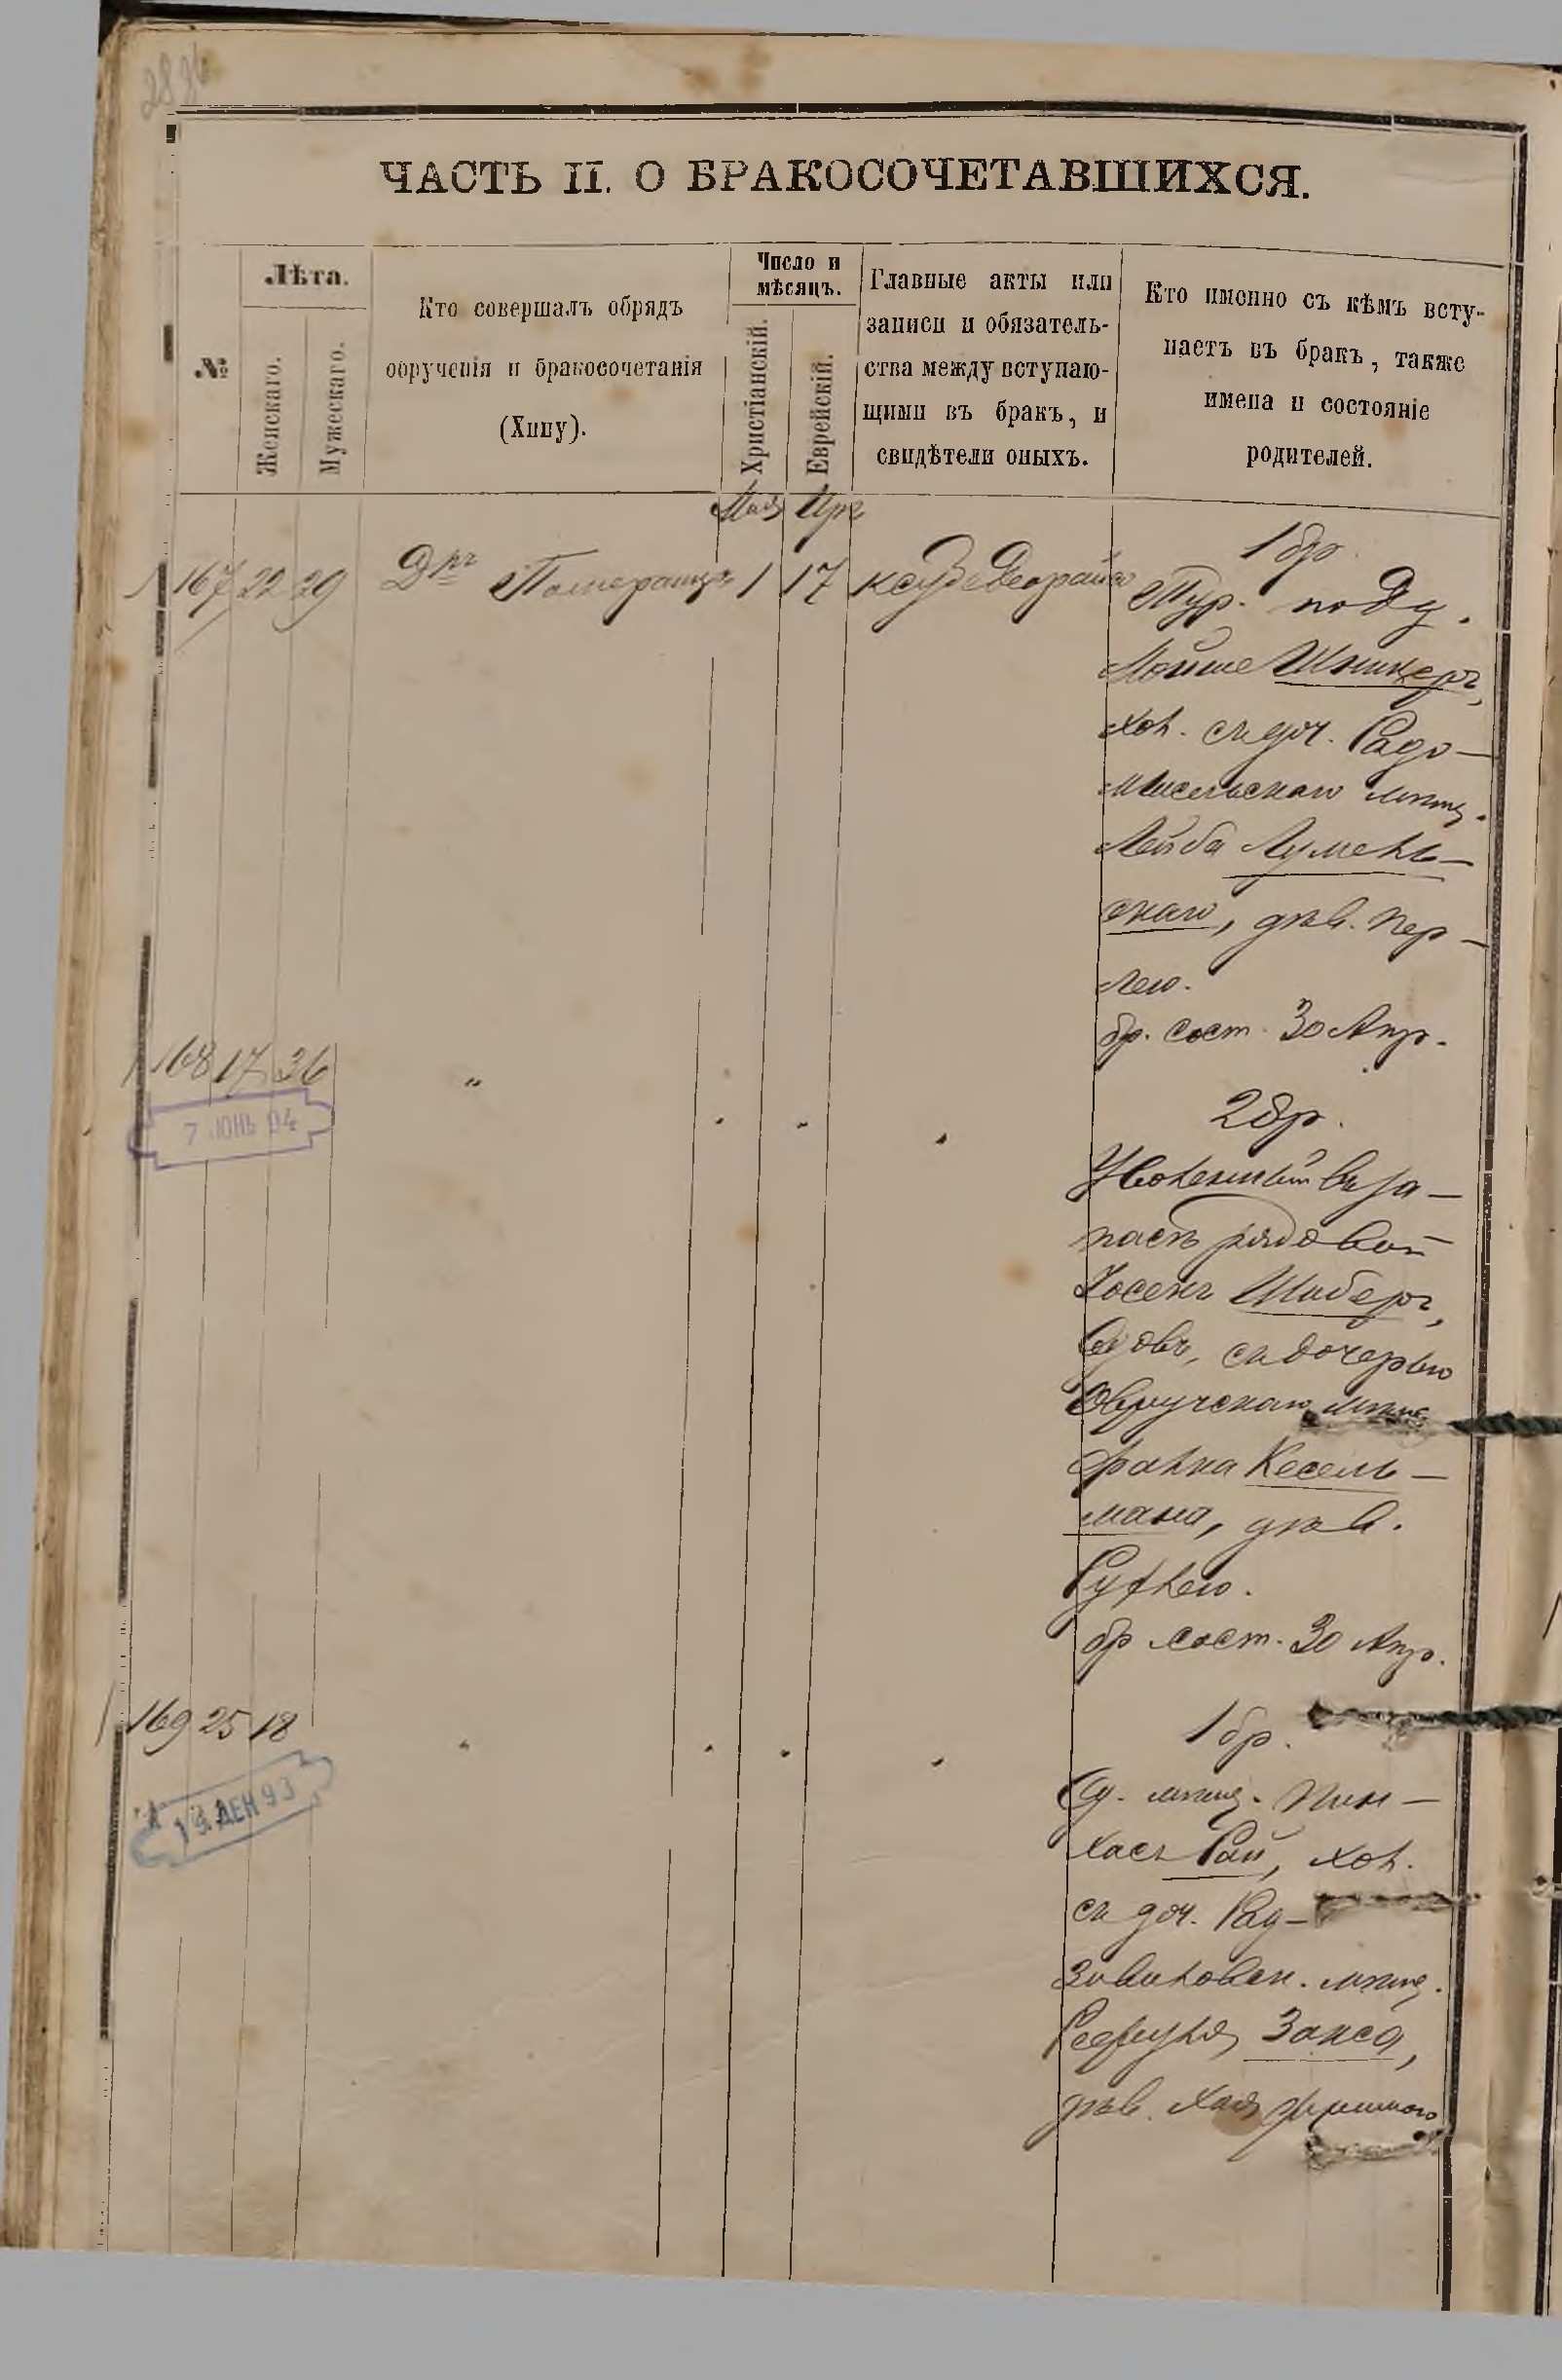 ЧАСТЬ II. О БРАКОСОЧЕТАВШИХСЯ.
№
Лѣта.
Женскаго.
Мужескаго.
Кто совершалъ обрядъ
обрученія и бракосочетанія
(Хипу).
Число и
мѣсяцъ.
Христіанскій.
Еврейскій.
Главные акты или
записи и обязатель-
ства между вступаю-
щими въ бракъ, и
свидѣтели оныхъ.
Кто именно съ кѣмъ всту-
паетъ въ бракъ, также
имена и состояніе
родителей.
Мая
167 22 29 Д-ръ Померанцъ 1 17
1 бр.
Тур. подд.
Мойше Шницеръ,
хол. съ доч. Радо-
мысельскаго мѣщ.
Лейба
скаго, дѣв. Пер-
лею.
бр. сост. 30 Апр.
168 17 36 " " " "
7 ІЮНЬ 94
2 бр.
Уволенный въ за-
пасъ рядовой
Іосекъ Шиберъ,
вдовъ, съ дочерью
Овручскаго мѣщ.
Кесель-
мана, дѣв.
бр сост. 30 Апр.
169 25 18 " " " "
19 ДЕК 93
1 бр.
Од. мѣщ. Пин-
хасъ Рай, хол.
съ доч. Рад-
зивиловск. мѣщ.
Закса,
дѣв. Хая